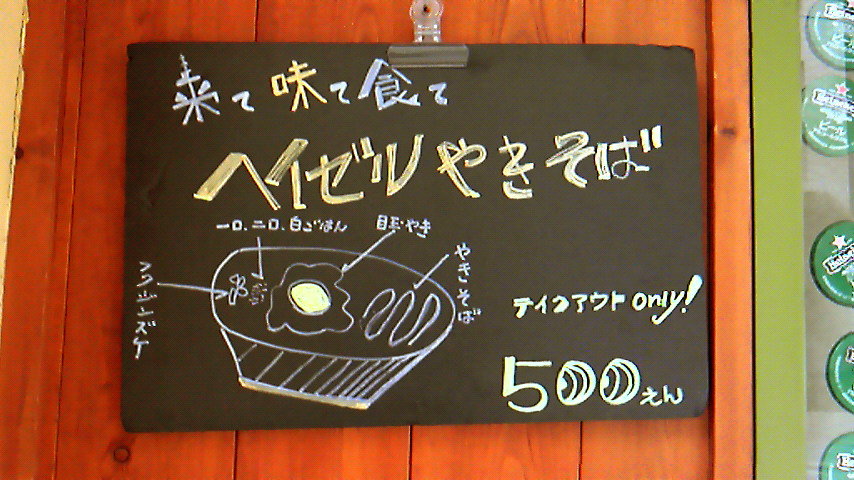 来て味て食て
ヘイゼルやきそば
一口、二口、白ごはん
目玉やき
やきそば
フクジンズケ
テイクアウトonly!
500えん
ビール